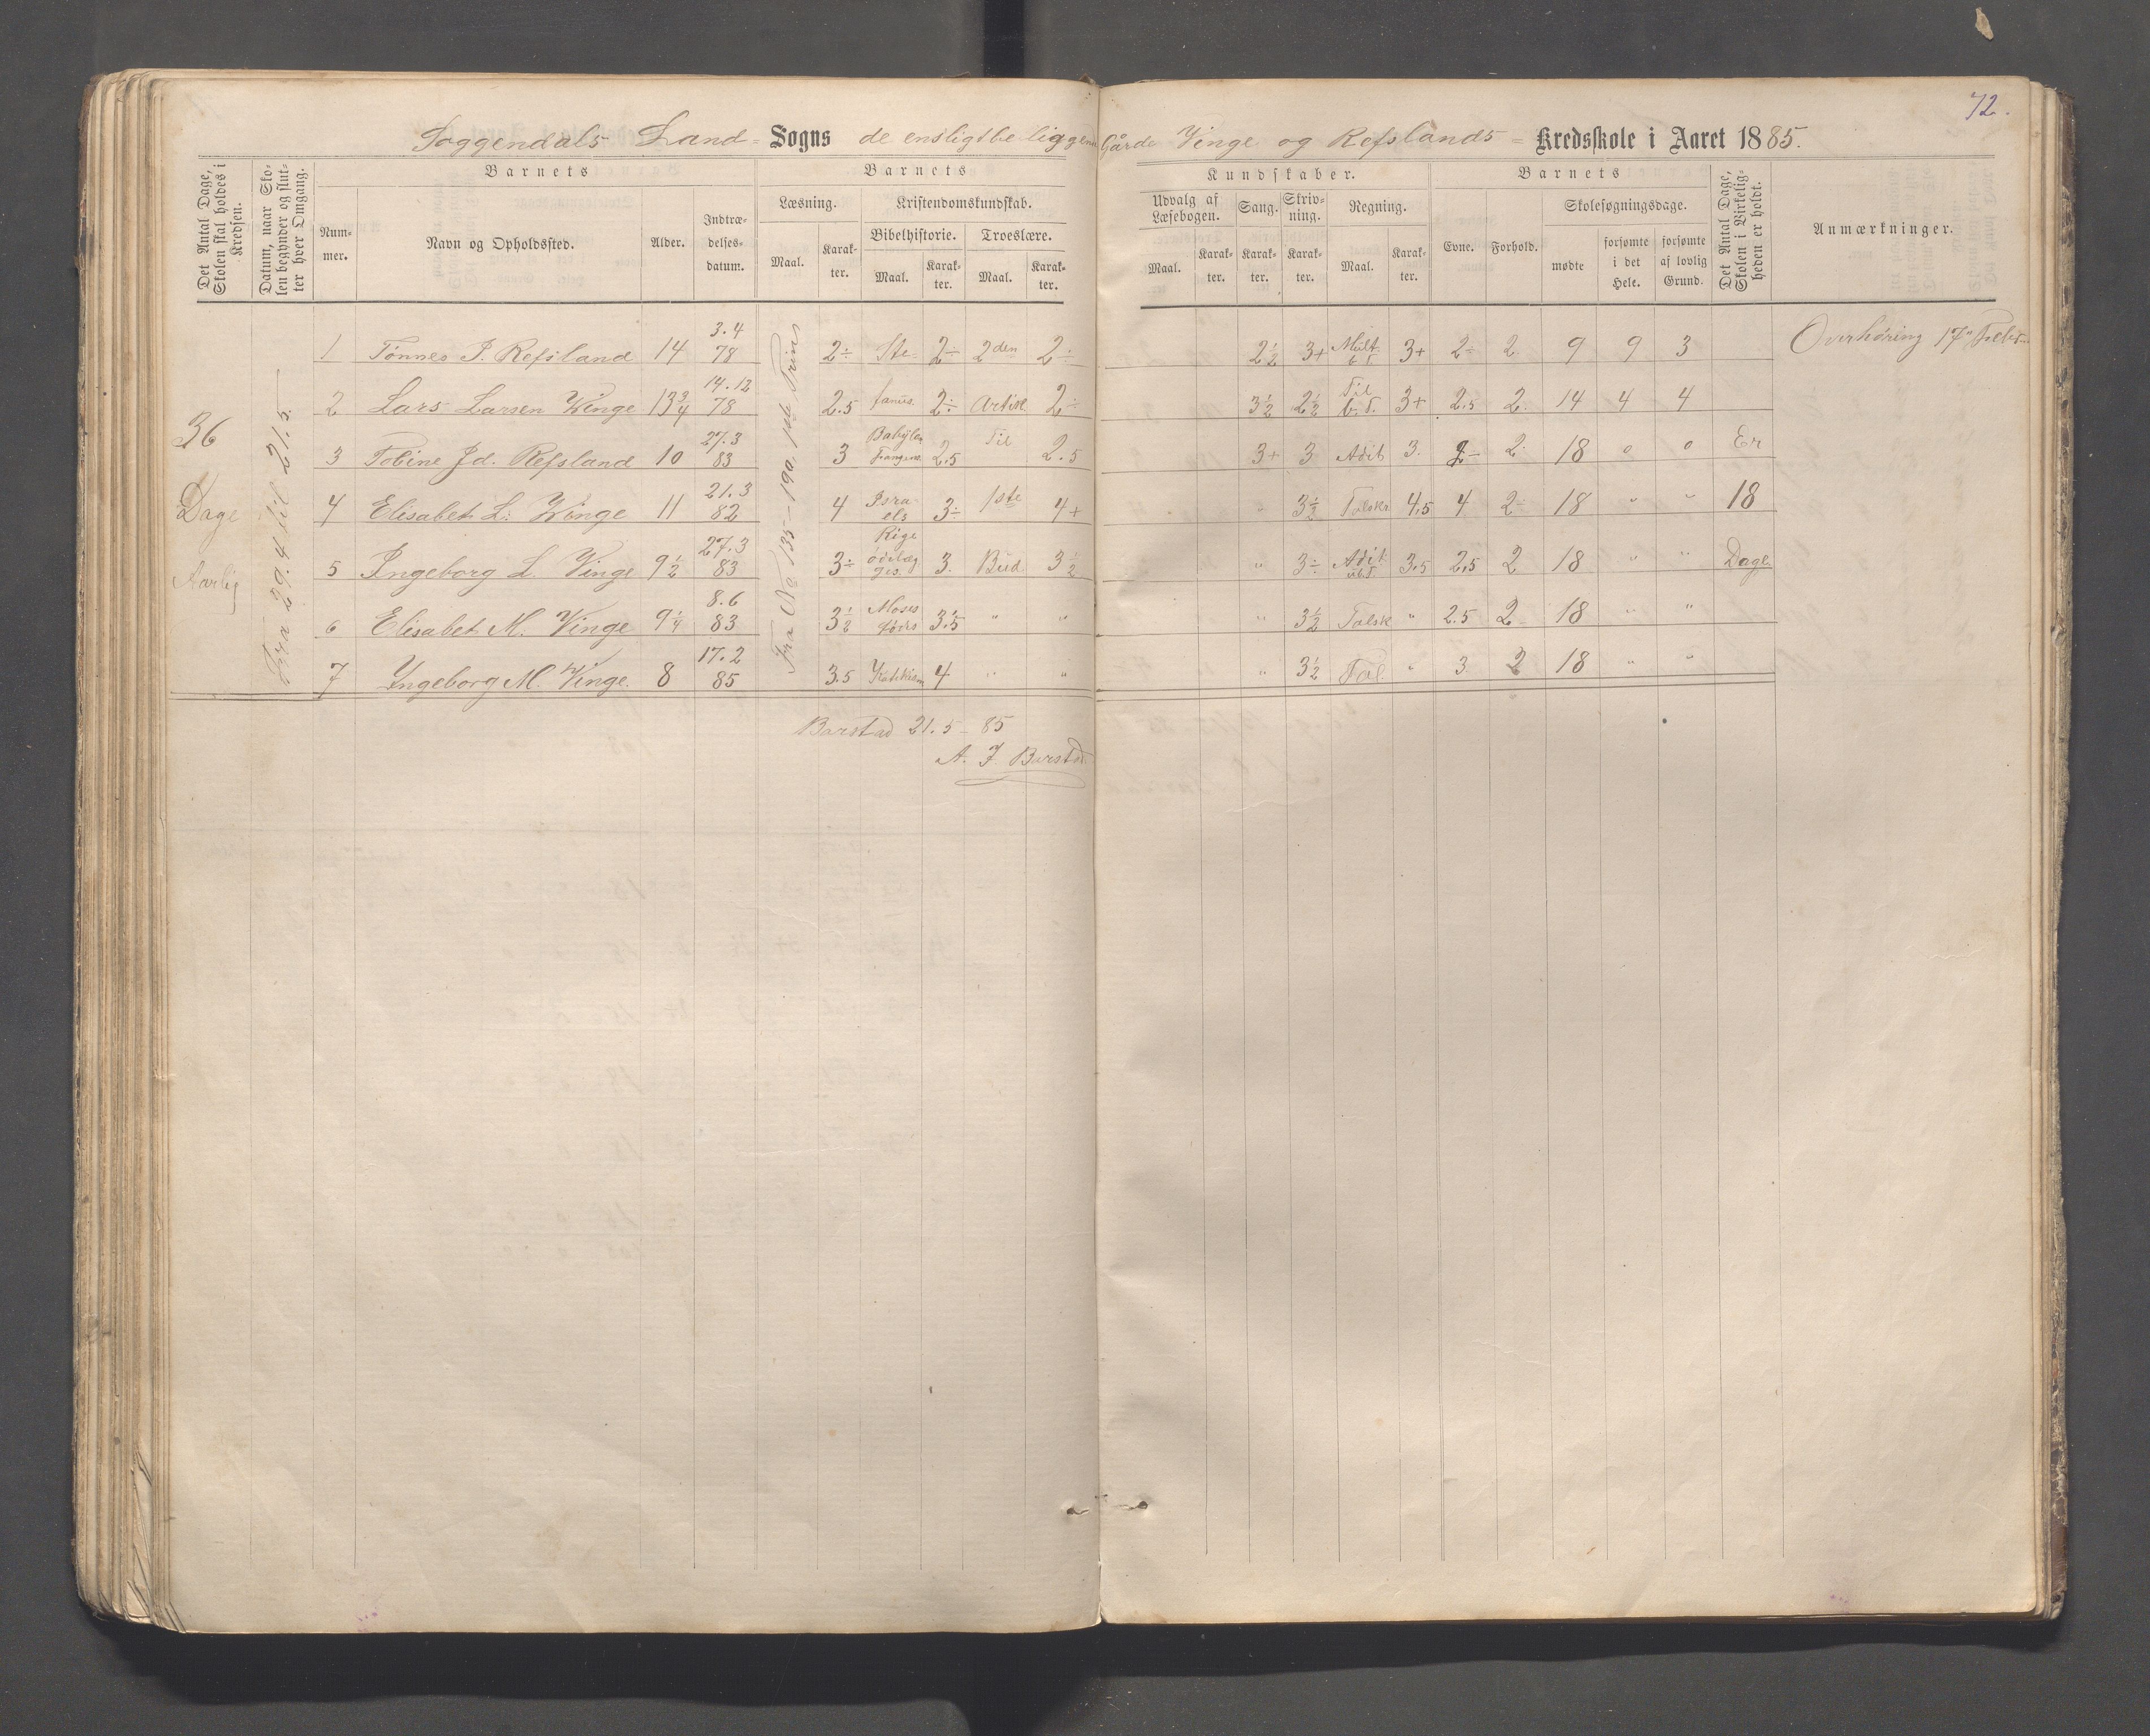 72.
Soggendals Land- Sogns de ensligtbeliggende Gårde Vinge og Refslands - Kredsskole i Aaret 1885.
Det Antal Dage, Skolen skal holdes i Kredsen.
Datum, naar Skolen begynder og slutter hver Omgang.
Barnets
Nummer.
Navn og Opholdssted.
Alder.
Indtrædelsesdatum.
Barnets
Læsning.
Maal.
Karakter.
Kristendomskundskab.
Bibelhistorie.
Maal.
Karakter.
Troeslære.
Maal.
Karakter.
Kundskaber.
Udvalg af Læsebogen.
Maal.
Karakter.
Sang.
Karakter.
Skrivning.
Karakter.
Regning.
Maal.
Karakter.
Barnets
Evne.
Forhold.
Skolesøgningsdage.
mødte
forsømte i det Hele.
forsømte af lovlig Grund.
Det Antal Dage, Skolen i Virkeligheden er holdt.
Anmærkninger.
36 Dage Aarlig
Fra 29.4 til 21.5.
Fra No 135-190. 1ste Trin
1 Tønnes P. Refsland 14 3.4 78 2÷ Ste 2÷ 2den 2÷ 2½ 3+ Mult 3+ 2÷ 2 9 9 3
2 Lars Larsen Vinge 13¾ 14.12 78 2.5 2÷ Artik 2÷ 3½ 2½ Til 3+ 2.5 2 14 4 4
3 Tobine Jd. Refsland 10 27.3 83 3 2.5 Til 2.5 3+ 3 Adit 3. 2- 2 18 0 0 Er
4 Elisabet L. Vinge 11 21.3 82 4 Israels 3÷ 1ste 4+ " 3½ Talskr 4.5 4 2 18 " " 18
5 Ingeborg L. Vinge 9½ 27.3 83 3÷ Rige ødelægges. 3. Bud 3½ " 3÷ Adit 3.5 2.5 2 18 " " Dage
6 Elisabet M. Vinge 9¼ 8.6 83 3½ Moses føds 3.5 " " " 3½ Talsk " 2.5 2 18 " "
7 Ingeborg M. Vinge. 8 17.2 85 3.5 4 " " " 3½ Tal " 3. 2 18 " "
Overhøring 17de Febr.
Barstad 21.5-85
A. J. Barstad